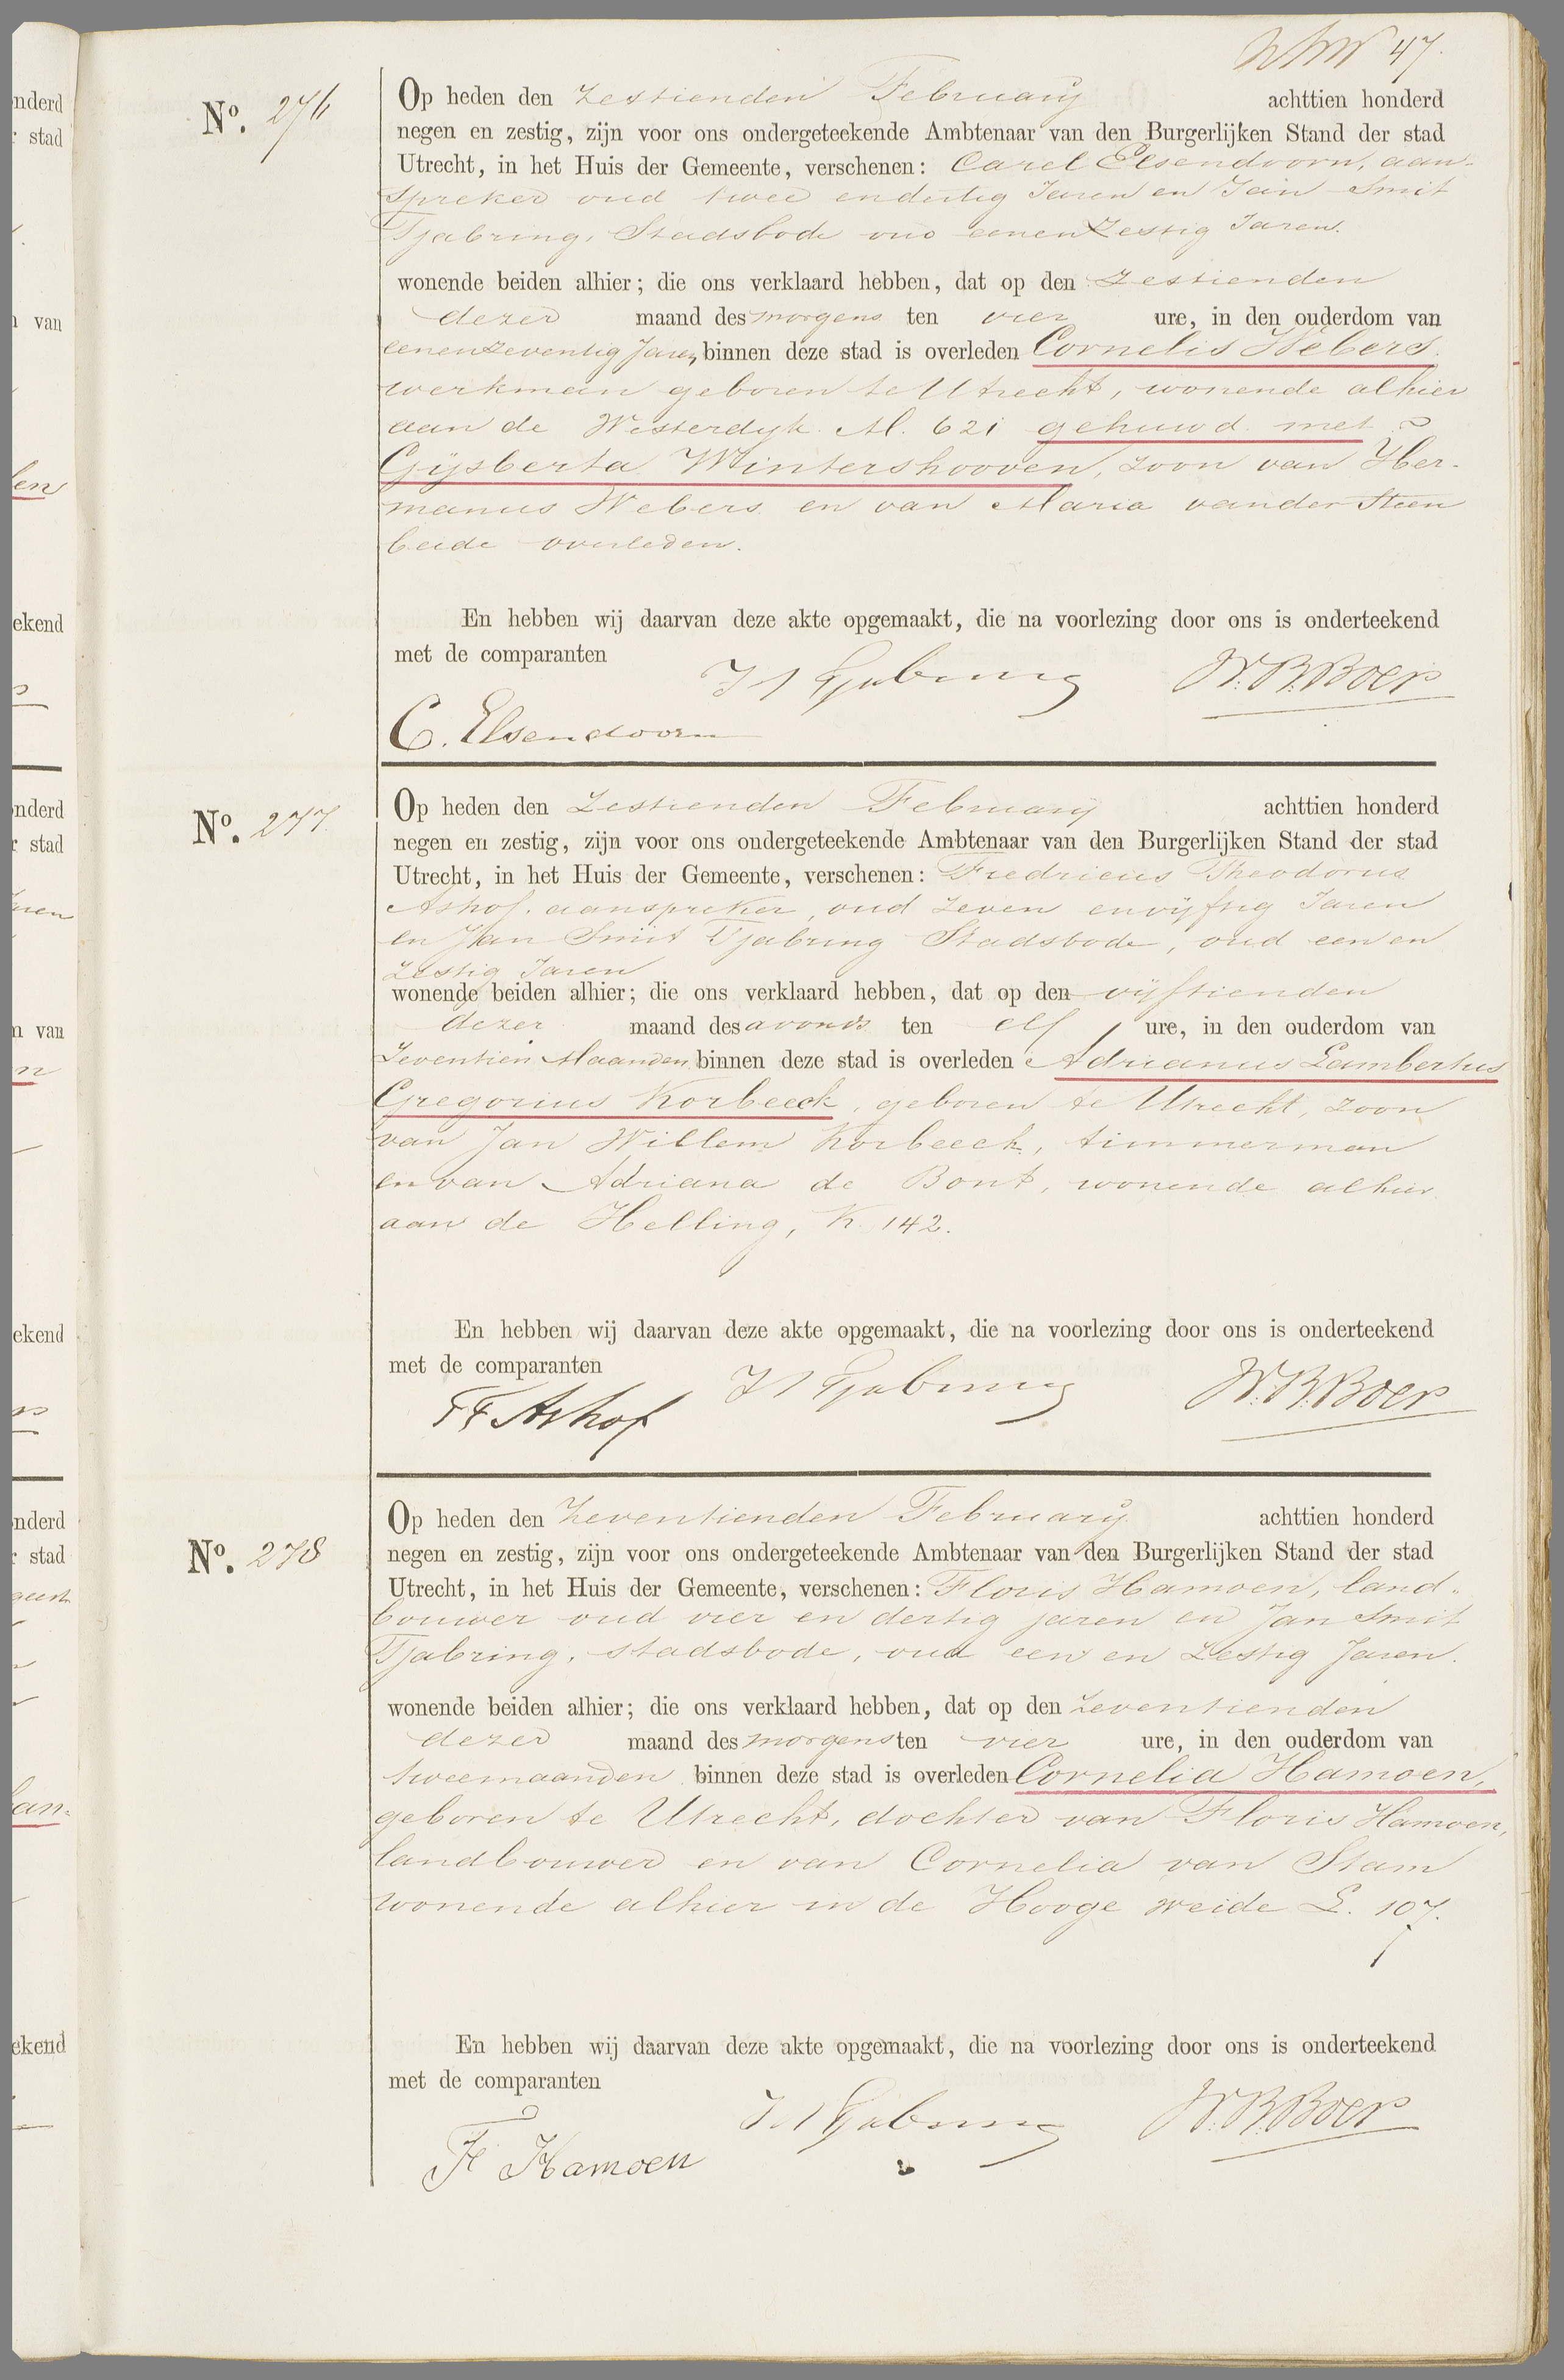 47.
No. 276
Op heden den Zestienden February achttien honderd
negen en zestig, zijn voor ons ondergeteekende Ambtenaar van den Burgerlijken Stand der stad
Utrecht, in het Huis der Gemeente, verschenen: Carel Elsendoorn, aan-
spreker oud twee en dertig Jaren en Jan Smit
Tjabring, Stadsbode oud eenen Zestig Jaren.
wonende beiden alhier; die ons verklaard hebben, dat op den Zestienden
dezer maand des morgens ten vier ure, in den ouderdom van
eenenzeventig Jaren, binnen deze stad is overleden Cornelis Webers.
werkman geboren te Utrecht, wonende alhier
aan de Westerdyk M. 621 gehuwd met
Gijsberta Wintershooven, zoon van Her-
manus Webers en van Maria vander Steen
beide overleden.
En hebben wij daarvan deze akte opgemaakt, die na voorlezing door ons is onderteekend
met de comparanten
J S Tjabring W. B. Boer
C. Elsendoorn
No. 277.
Op heden den Zestienden February achttien honderd
negen en zestig, zijn voor ons ondergeteekende Ambtenaar van den Burgerlijken Stand der stad
Utrecht, in het Huis der Gemeente, verschenen: Fredricus Theodorus
Ashof, aanspreker, oud zeven en vijftig Jaren
en Jan Smit Tjabring Stadsbode, oud een en
zestig Jaren
wonende beiden alhier; die ons verklaard hebben, dat op den vijftienden
dezer maand des avonds ten elf ure, in den ouderdom van
Zeventien Maanden binnen deze stad is overleden Adrianus Lambertus
Gregorius Korbeeck, geboren te Utrecht, zoon
van Jan Willem Korbeeck, timmerman
en van Adriana de Bont, wonende alhier
aan de Helling, K. 142.
En hebben wij daarvan deze akte opgemaakt, die na voorlezing door ons is onderteekend
met de comparanten
J S Tjabring W. B. Boer
Ashof
No. 278
Op heden den Zeventienden February achttien honderd
negen en zestig, zijn voor ons ondergeteekende Ambtenaar van den Burgerlijken Stand der stad
Utrecht, in het Huis der Gemeente, verschenen: Floris Hamoen, land-
bouwer oud vier en dertig jaren en Jan Smit
Tjabring, stadsbode, oud een en zestig Jaren.
wonende beiden alhier; die ons verklaard hebben, dat op den zeventienden
dezer maand des morgens ten vier ure, in den ouderdom van
twee maanden binnen deze stad is overleden Cornelia Hamoen,
geboren te Utrecht, dochter van Floris Hamoen,
landbouwer en van Cornelia van Stam
wonende alhier in de Hooge weide L. 107.
En hebben wij daarvan deze akte opgemaakt, die na voorlezing door ons is onderteekend
met de comparanten
J S Tjabring W. B. Boer
F Hamoen